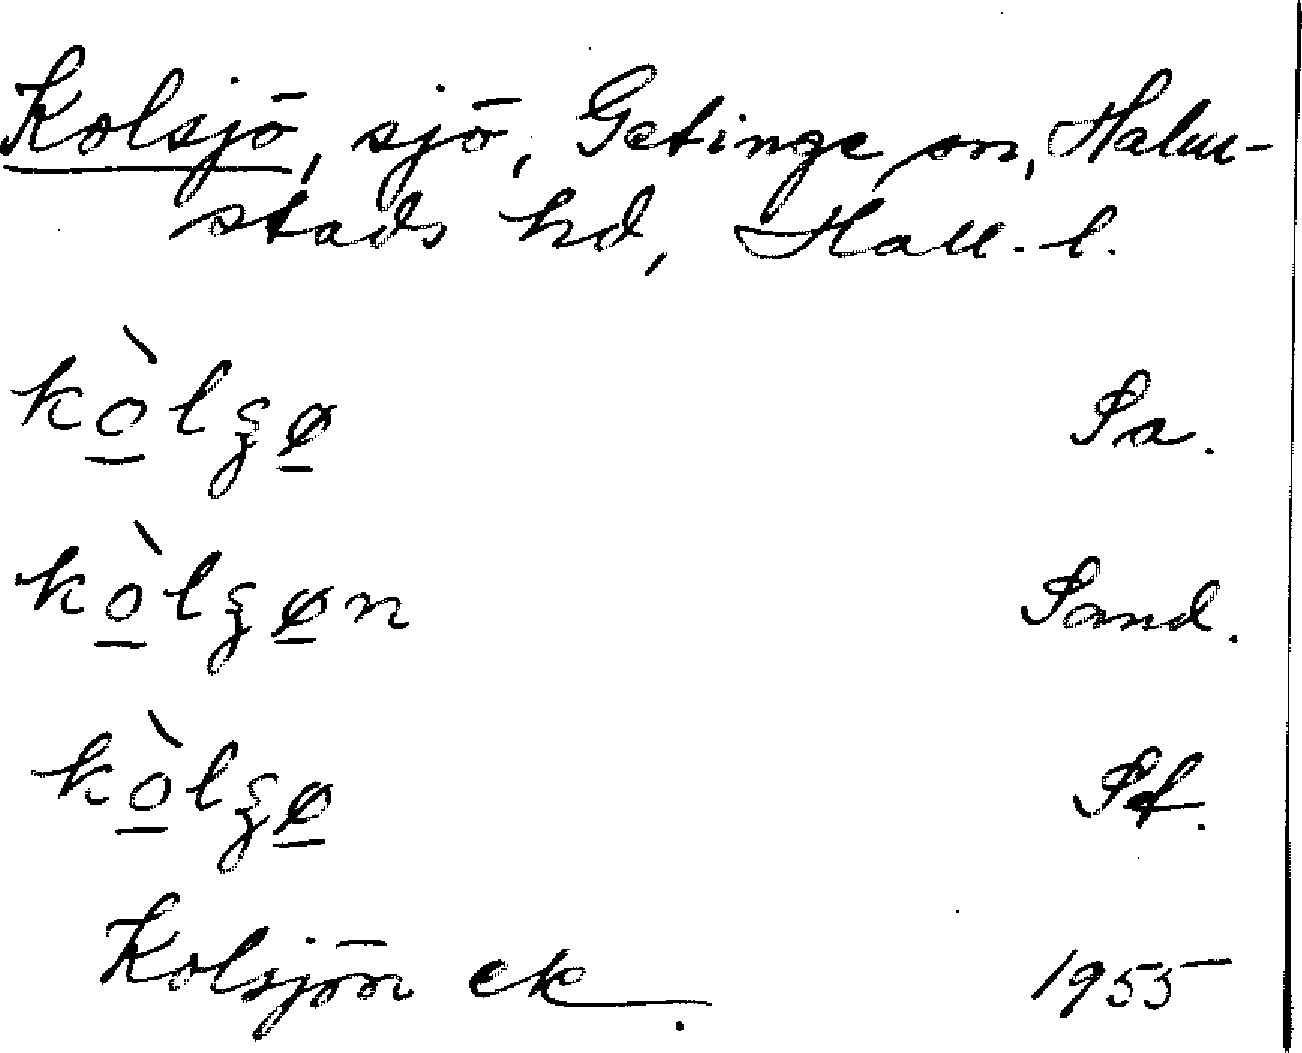 Kolsjö, sjö, Getinge sn, Halm-
stads hd, Hall. l.
kò̲lʒø̲ Sa.
kò̲lʒø̲n Sand.
kò̲lʒø̲ St.
Kolsjön ek. 1955